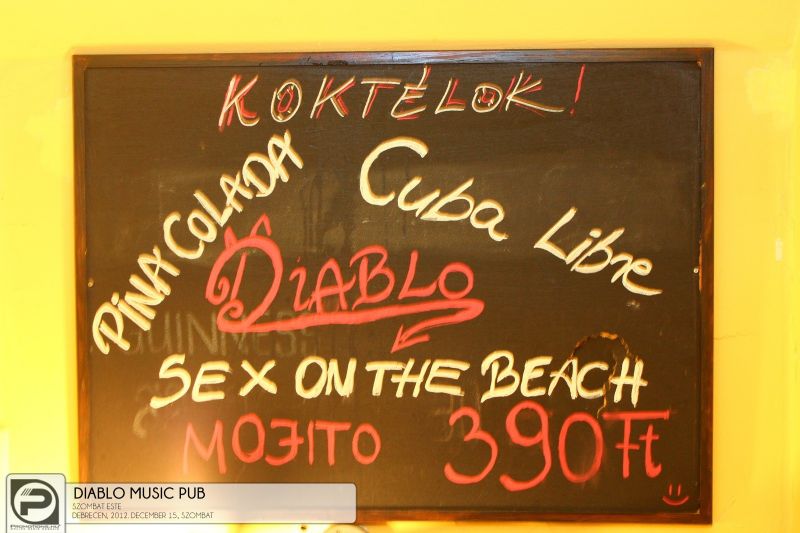 KOKTÉLOK!
PINA COLADA
Cuba Libre
DiABLO
GUINNESS
SEX ON THE BEACH
MOJITO 390Ft
DIABLO MUSIC PUB
SZOMBAT ESTE
DEBRECEN, 2012. DECEMBER 15., SZOMBAT